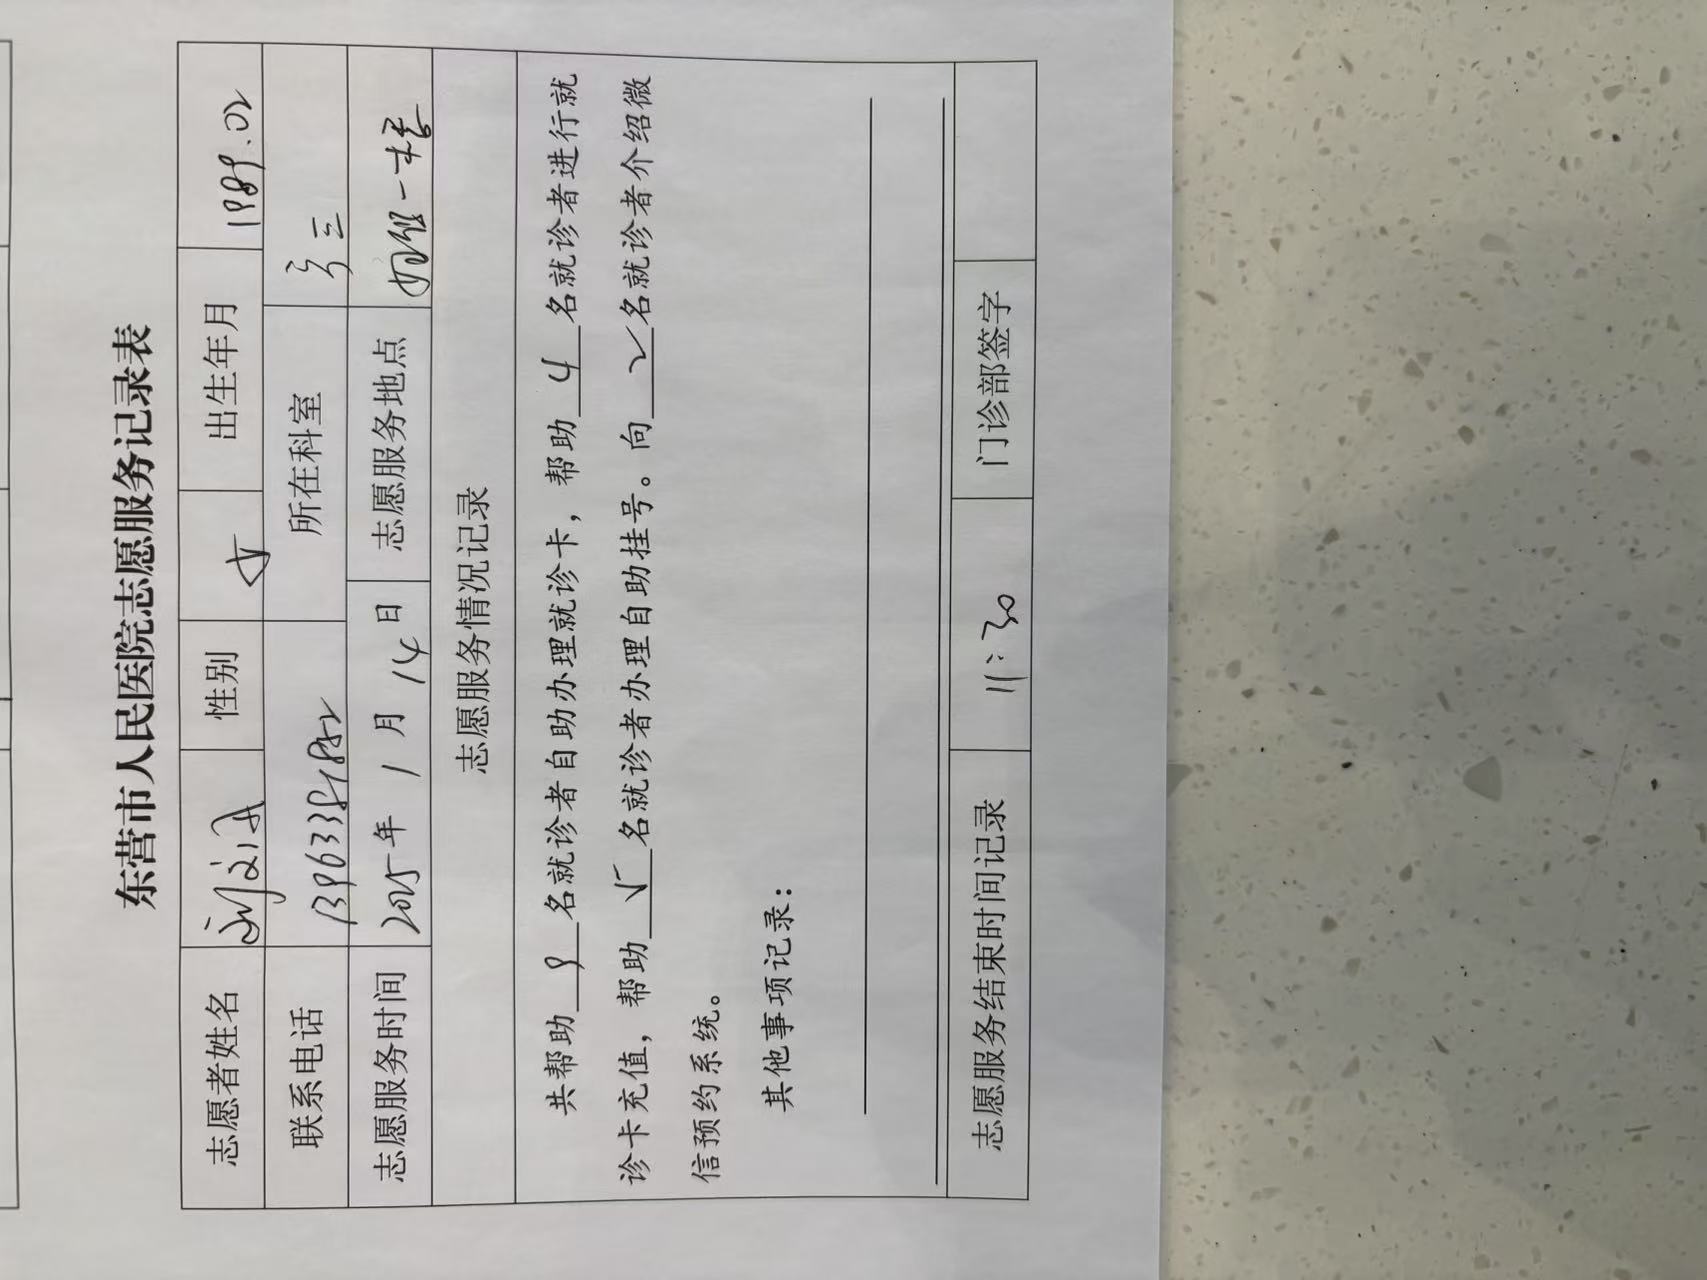 东营市人民医院志愿服务记录表
志愿者姓名 刘 性别 女 出生年月 1989.02
联系电话 所在科室 三
志愿服务时间 2025年 1 月 14 日 志愿服务地点 一楼
志愿服务情况记录
共帮助 9 名就诊者自助办理就诊卡，帮助 4 名就诊者进行就
诊卡充值，帮助 5 名就诊者办理自助挂号。向 2 名就诊者介绍微
信预约系统。
其他事项记录：
志愿服务结束时间记录 11:30 门诊部签字